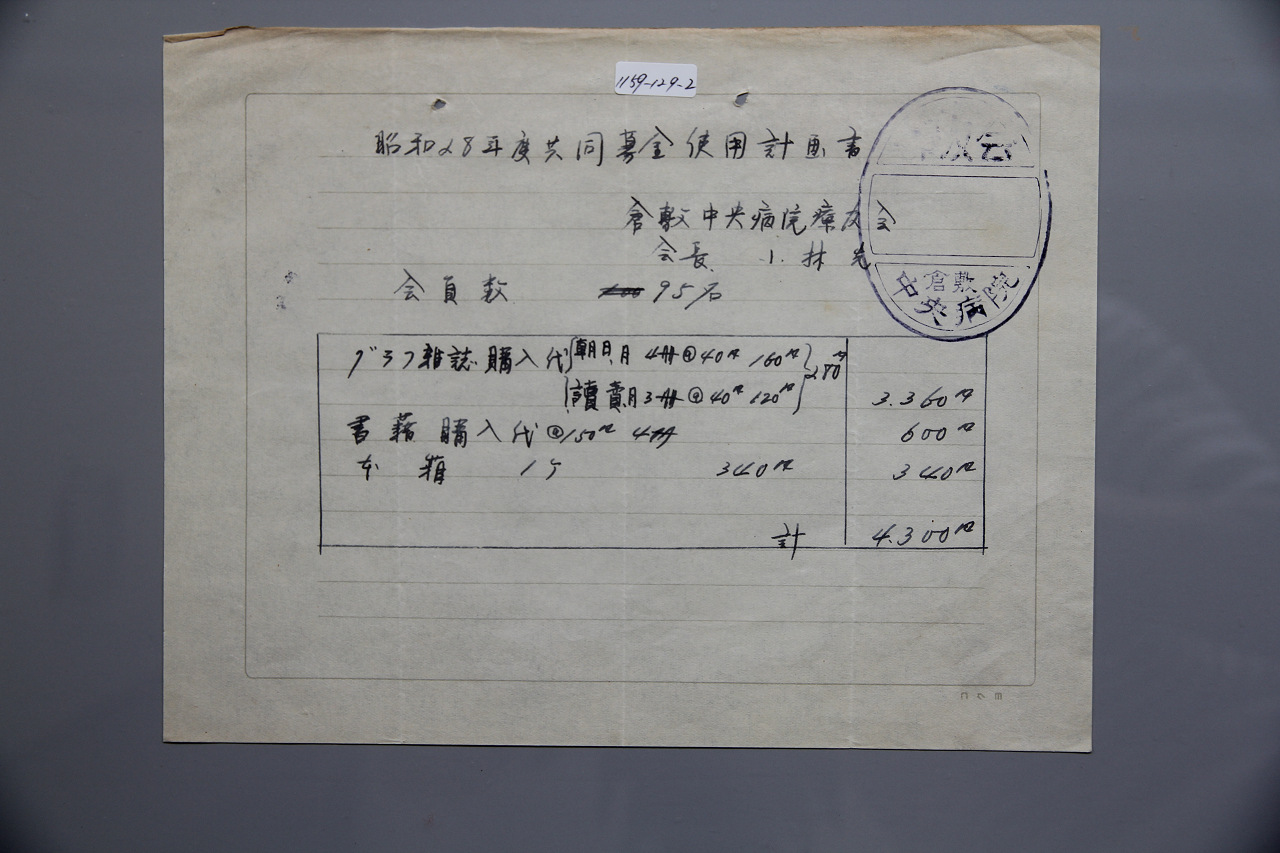 1159-129-2
昭和28年度共同募金使用計画書
倉敷中央病院療友会
会長 小林
会員数 95名
グラフ雑誌購入代 朝日 月 4冊@40円 160円 280円
讀賣 月3冊@40円 120円 3.360円
書籍購入代@150円 4冊 600円
本箱 1ケ 340円 340円
計 4.300円
友会
倉敷
中央病院